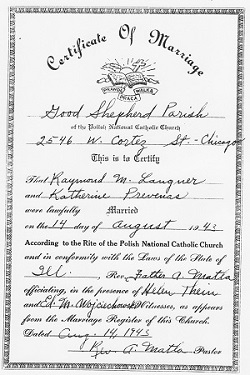 Certificate Of Marriage
PRAWDA WALKA
PRACA
Good Shepherd Parish
of the Polish National Catholic Church
2546 W. Cortez St - Chicago
This is to Certify
That Raymond M. Languer
and Katherine Prevenas
were lawfully Married
on the 14 day of August 1943
According to the Rite of the Polish National Catholic Church
and in conformity with the Laws of the State of
Ill. Rev. Father A Matla
officiating, in the presence of Helen Thein
and Ed. M. Witnesses, as appears
from the Marriage Register of this Church.
Dated Aug. 14, 1943
Rev A. Matla Pastor